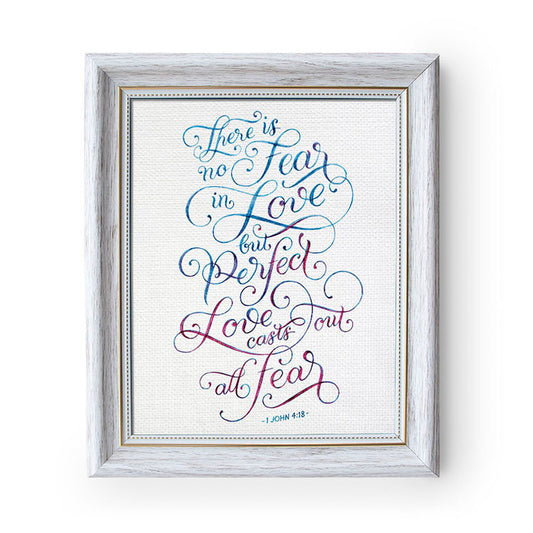 There is
no Fear
in Love
but
Perfect
Love
casts out
all Fear
-1 JOHN 4:18-